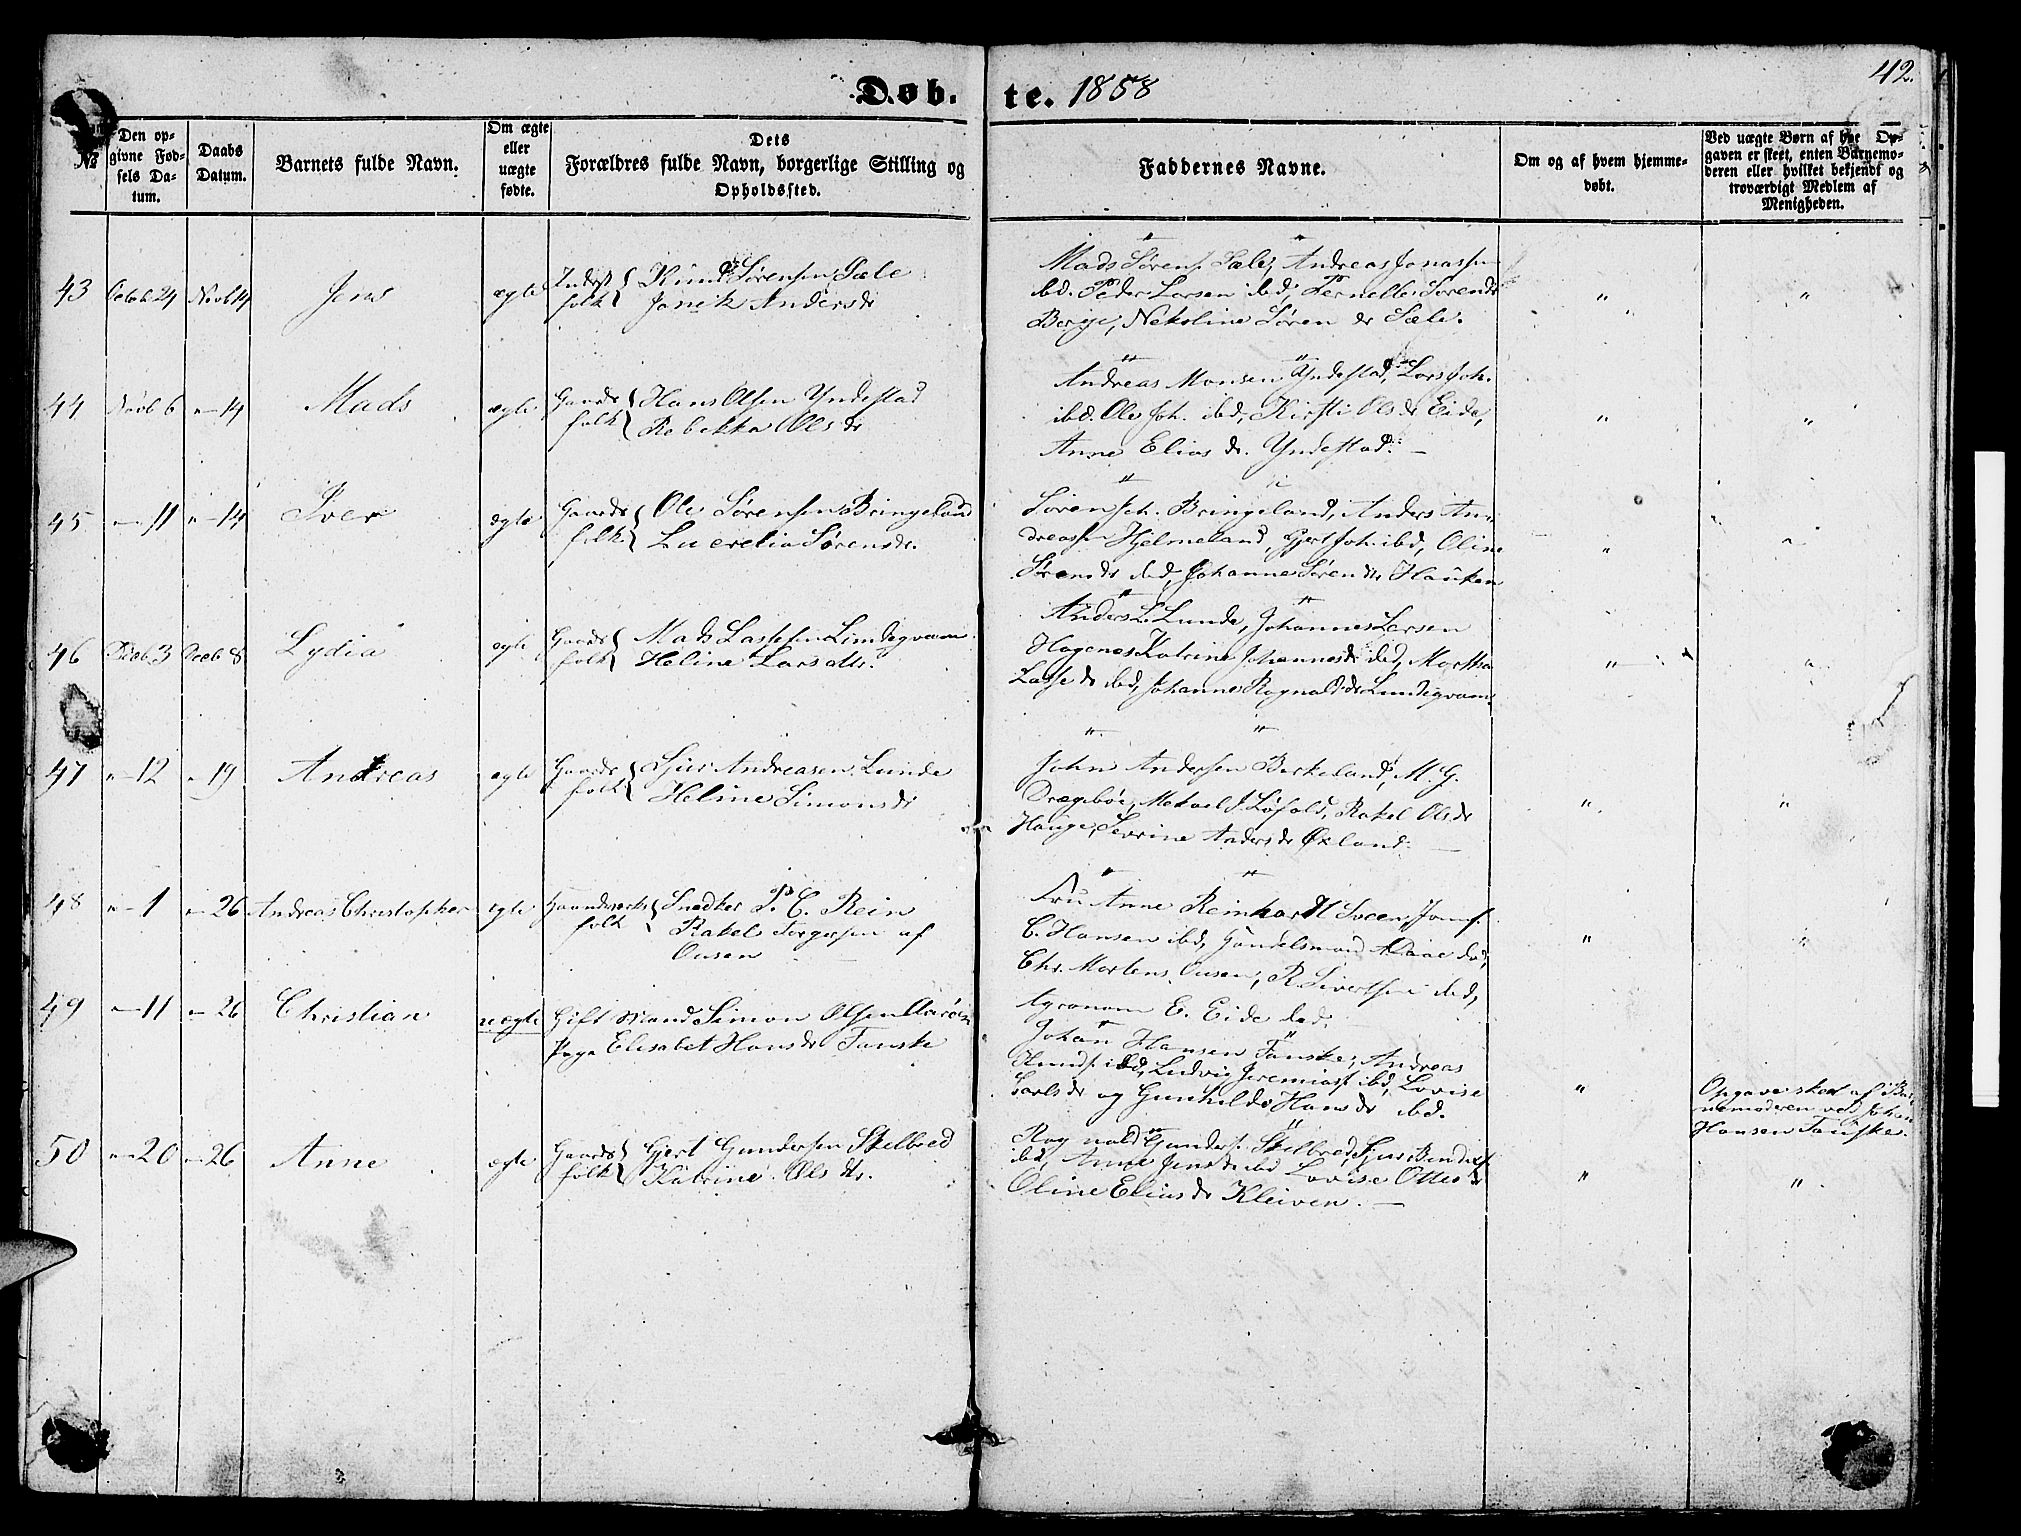 Døb. te. 1858
42.
No
Den opgivne Fødsels Datum.
Daabs Datum.
Barnets fulde Navn.
Om ægte eller uægte fødte.
Dets Forældres fulde Navn, borgerlige Stilling og Opholdssted.
Faddernes Navne.
Om og af hvem hjemmedøbt.
Ved uægte Børn af hve Opgaven er skeet, enten Barnemoderen eller hvilket bekjendt og troværdigt Medlem af Menigheden.
43 Octob 24 Novb 14 Jens ægte Inderst folk { Knud Sørensen Sæle
Janik Anders dr
Mads Sørens. Sæle, Andreas Jonassen
ibd. Peder Larsen ibd, Pernelle Sørensdr
Berge, Nekoline Søren dr Sæle.
" "
44 Novb 6 " 14 Mads ægte Gaards folk { Hans Olsen Yndestad
Rebekka Ols dr
Andreas Monsen Yndestad, Lars Joh.
ibd. Ole Joh. ibd, Kirsti Ols dr Eide,
Anne Elias dr. Yndestad. —
" "
45 " 11 " 14 Iver ægte Gaards folk { Ole Sørensen Bringeland
Lucretia Sørensdr.
Søren Joh. Bringeland, Anders An-
dreassen Hjelmeland, Gjert Joh. ibd, Oline
Sørensdr ibd, Johanne Sørensdr Hauken
" "
46 Deeb 3 Deeb 8 Lydia ægte Gaards folk { Mads Lassesen Lindeqvam
Heline Lars dtr.
Anders L. Lunde, Johannes Larsen
Hagenes Katrine Johannesdr ibd, Martha
Lasse dr ibd, Johanne Ragnaldsdr Lindeqvam,
" "
47 " 12 " 19 Andreas ægte Gaards folk { Sjur Andreasen Lunde
Heline Simons dr
John Andersen Birkeland, M. G.
Drægebøe, Mekael J. Løfald, Rakel Ols dr
Hauge, Sevrine Anders dr Øxland. —
" "
48 " 1 " 26 Andreas Christopher ægte Haandværks folk { Snedker P. C. Rein
Rakel Torgersen af
Ousen
Fru Anne Reinhardt Sveen, Jomf.
C. Hansen ibd, Handelsmand Aaae ibd,
Chr. Mortens. Ousen, R. Sivertsen ibd,
Agronom E. Eide ibd.
" "
49 " 11 " 26 Christian uægte Gift Mand Simon Olsen Aarøen
Pige Elisabet Hans dr Fanske
Johan Hansen Fanske, Andreas
Knuds. ibd, Ludvig Jeremias. ibd, Lovise
Carls dr og Gunhilde Hans dr ibd.
"
Opgave skeet af Bar-
nemoderen ved Johan
Hansen Fanske.
50 " 20 " 26 Anne ægte Gaards folk { Gjert Gundersen Skelbred
Katrine Ols dtr.
Ragnald Gunders. Skelbred, Sjur Bendixs.
ibd, Anne Jens dr ibd Lovise Ottes dr
Oline Elias dr Kleiven. —
" "